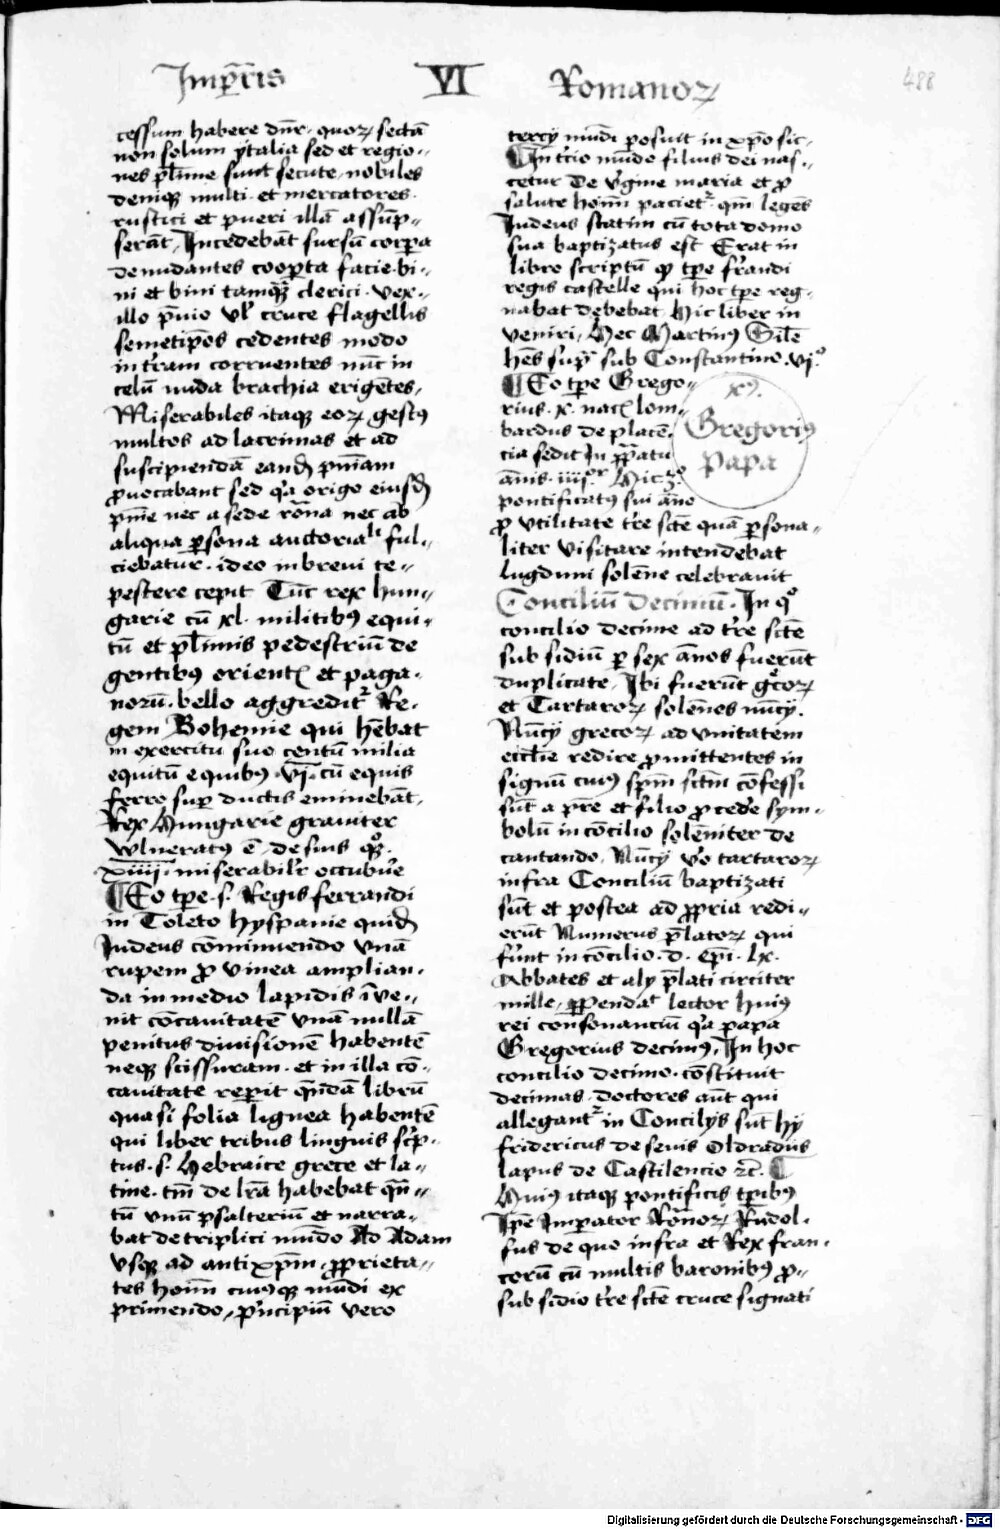 Imp̄r̄is VI Romanoꝝ 488
cessum habere dn̄r. quoꝝ sectā
non solum ytalia sed et regio-
nes pl̄ime sunt secute, nobiles
deniqꝫ multi et mercatores.
rustici et pueri illā assūp-
serāt, Incedebāt sursū corꝑa
denudantes cooꝑta facie bi-
ni et bini tamqꝫ clerici. vex-
illo p̄uio vl̓ cruce flagellis
semetip̄os cedentes modo
in tr̄am corruentes nūc in
celū nuda brachia erigētes,
Miserabiles itaqꝫ eoꝝ gestꝯ
multos ad lacrimas et ad
suscipiendā eandē pn̄iam
ꝓuocabant sed qꝛ origo eiusdē
pn̄ie nec a sede rōna nec ab
aliqua ꝑsona auctoria^li ful-
ciebatur. ideo in breui te-
pestere cepit Tūc rex hun-
garie cū xl. militibꝯ equi-
tū et pl̄imis pedestriū de
gentibꝯ orientꝭ et paga-
norū. bello aggredit^r Re-
gem Bohemie qui hēbat
in exercitu suo centū milia
equitū e quibꝯ vj. cū equis
ferro suꝑ ductis eminebāt,
Rex Hungarie grauiter
wlneratꝯ ē, de suis qꝫ
xiiij. miserabilr̄ occubūe
¶Eo tp̄e. s. Regis ferrandi
in Toleto hyspanie quidā
Iudeus cōminuendo vnā
rupem ꝓ vinea amplian-
da in medio lapidis īue-
nit cōcauitatē vnā nullā
penitus diuisionē habentē
neqꝫ scissuram. et in illa cō-
cauitate reꝑit qn̄dā librū
quasi folia lignea habentē
qui liber tribus linguis sc̄p-
tus. s. Hebraice grece et la-
tine. tm̄ de lr̄a habebat qn̄-
tū vnū psalteriū et narra-
bat de triplici mūdo Ab Adam
vsqꝫ ad antixp̄m, ꝓprieta-
tes hoīm cuiusqꝫ mūdi ex
primendo, p̓ncipiū vero
tercij mūdi posuit in xp̄o sic.
¶In tercio mūdo filius dei nas-
cetur de v̓gine maria et ꝓ
salute hoīm paciet^r. qm̄ legēs
Iudeus statim cū tota domo
sua baptizatus est Erat in
libro scriptū ꝙ tp̄e fr̄andi
regis castelle qui hoc tp̄e reg-
nabat debebat Hic liber in
veniri, Hec Martinꝯ Sile
hēs sup̄ sub Constantino. vj.^o
¶Eo tp̄e Grego-
rius. x. nacꝭ lom-
bardus de placē-
cia sedit In ꝓpatu
ānis. iiij^or Hic 3^o
pontificatꝯ sui āno
xꝯ.
Gregoriꝯ
papa
ꝓ vtilitate tr̄e sctē quā ꝑsona-
liter visitare intendebat
lugduni solēne celebrauit
Conciliū Decimū. In q^o
concilio decime ad tr̄e sctē
subsidiū ꝑ sex ānos fuerūt
duplicate, Ibi fuerūt gꝛecoꝝ
et Tartaroꝝ solēnes nūcij.
Nūcij grecoꝝ ad vnitatem
eccl̄ie redire ꝓmittentes in
signū cuiꝯ sp̄m sctm̄ cōfessi
sūt a pr̄e et filio ꝓcede̓ sym-
bolū in cōcilio solēniter de
cantando, Nūcij v̓o tartaroꝝ
infra Conciliū baptizati
sūt et postea ad ꝓpria redi-
erūt Numerus p̄latoꝝ qui
fu̓nt in cōcilio. d. ep̄i. lx.
Abbates et alij p̄lati circiter
mille, ꝑpendat lector huiꝯ
rei consonanciū qꝛ papa
Gregorius decimꝯ, In hoc
concilio decimo. cōstituit
decimas. doctores aūt qui
allegant^r in Concilijs sūt hij
fridericus de senis Oldradus
lapus de Castilencio ⁊c̄. ¶
Huiꝯ itaqꝫ pontificis tp̄ibꝯ
Ip̄e Imꝑator Rōnoꝝ Rudol-
fus de quo infra et Rex fran-
corū cū multis baronibꝯ ꝓ
subsidio tr̄e sctē cruce signati
Digitalisierung gefördert durch die Deutsche Forschungsgemeinschaft - DFG